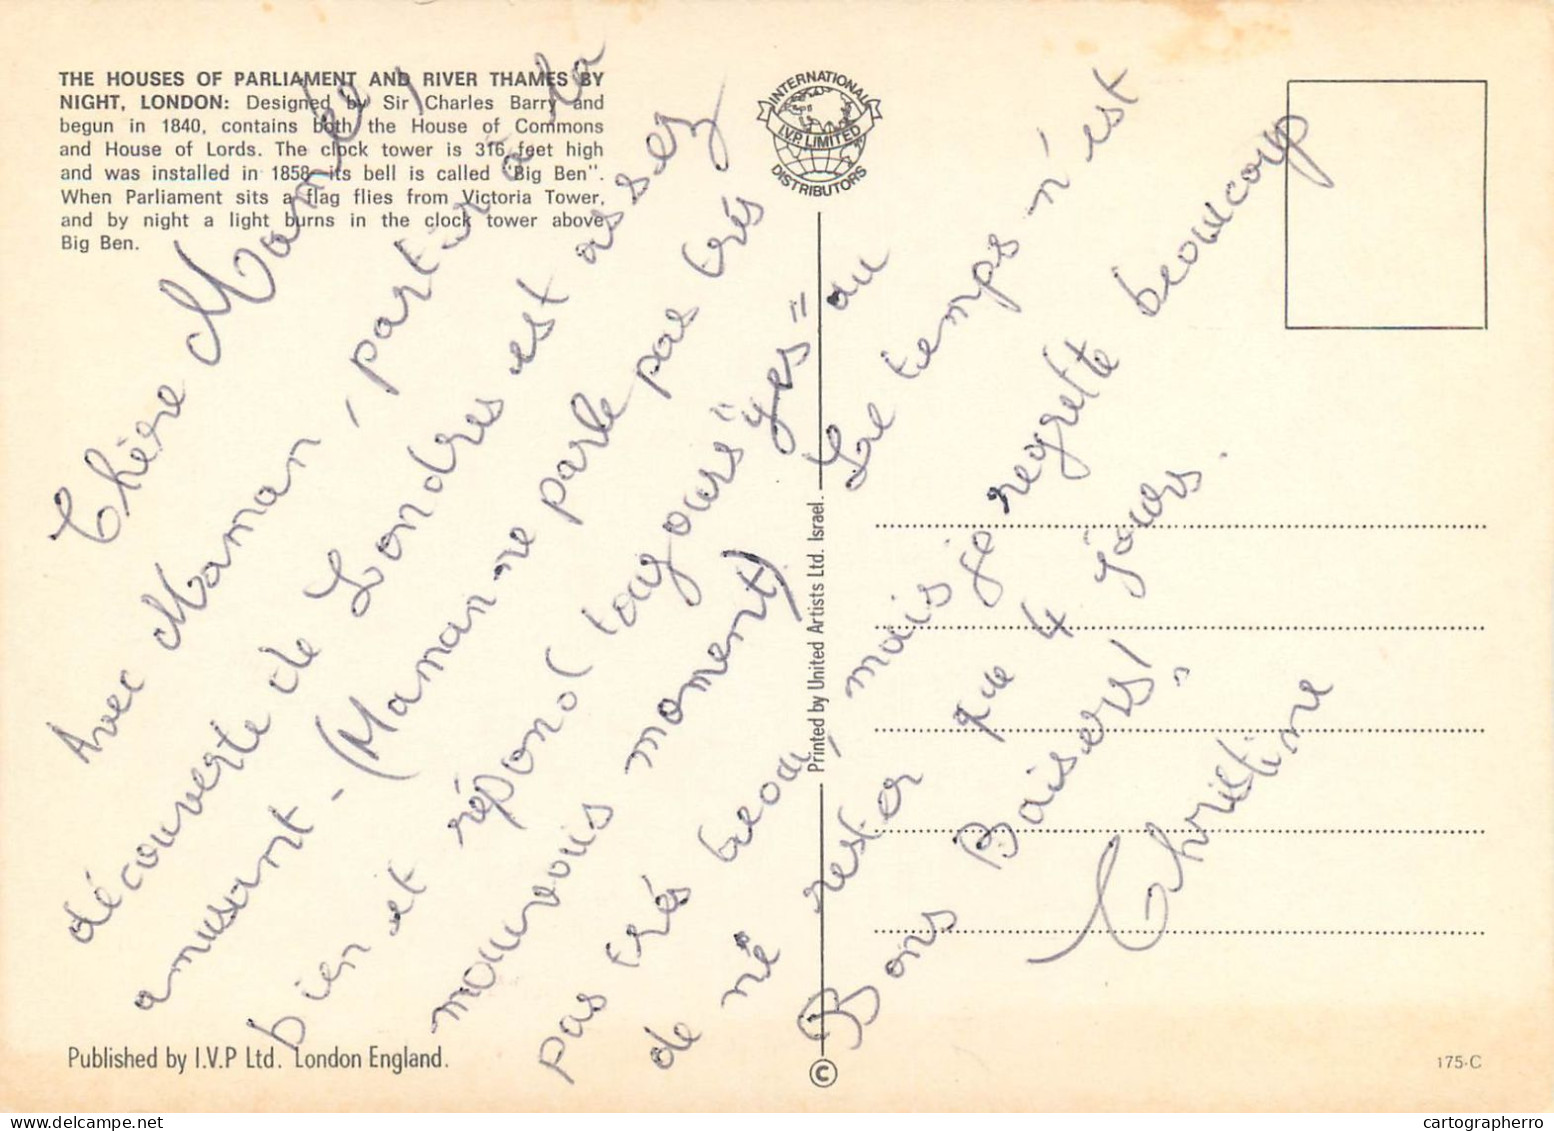 THE HOUSES OF PARLIAMENT AND RIVER THAMES BY
NIGHT, LONDON: Designed by Sir Charles Barry and
begun in 1840, contains both the House of Commons
and House of Lords. The clock tower is 316 feet high
and was installed in 1858, its bell is called "Big Ben".
When Parliament sits a flag flies from Victoria Tower,
and by night a light burns in the clock tower above
Big Ben.
INTERNATIONAL
I.V.P. LIMITED
DISTRIBUTORS
Chère Mamée,
Avec Maman, partir à la
découverte de Londres est assez
amusant - (Maman ne parle pas très
bien et répond toujours "yes" au
mauvais moment) Le temps n'est
pas très beau, mais je regrette beaucoup
de ne rester que 4 jours.
Bons Baisers!
Christine
Printed by United Artists Ltd. Israel.
Published by I.V.P Ltd. London England.
©
175-C
cartographerro